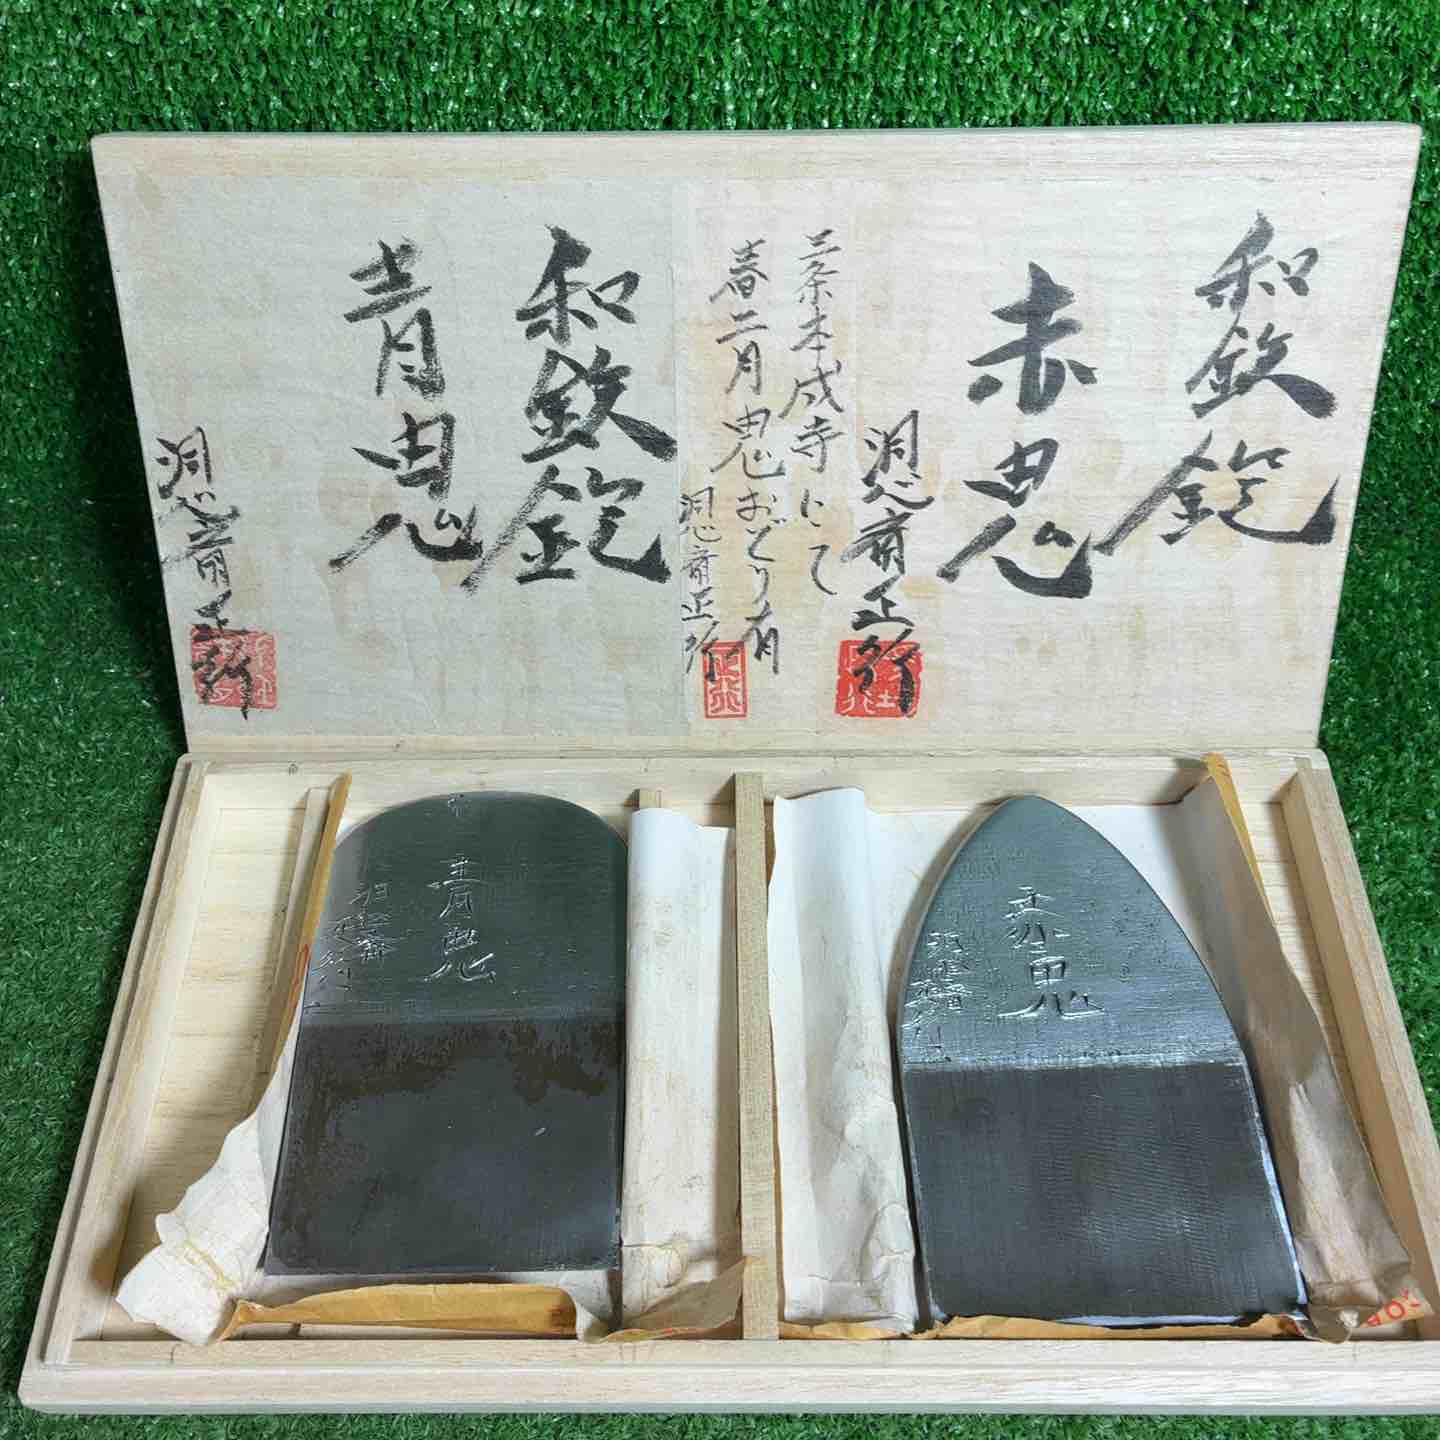 和鉄鉋
赤鬼
洞心斎正行
三条本成寺にて
春二月鬼おどり有
洞心斎正行
正行
和鉄鉋
青鬼
洞心斎正行
青鬼
洞心斎
赤鬼